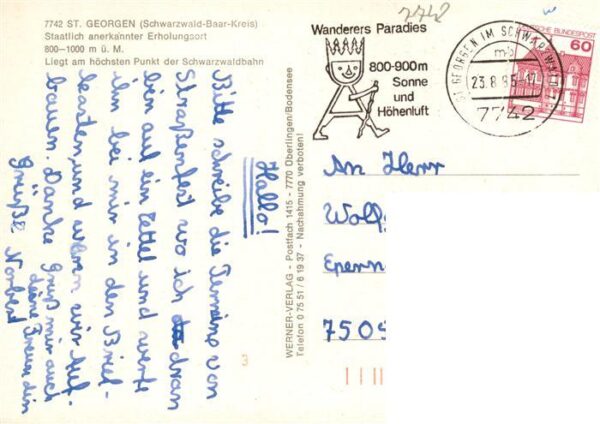 7742 ST. GEORGEN (Schwarzwald-Baar-Kreis)
Staatlich anerkannter Erholungsort
800–1000 m ü. M.
Liegt am höchsten Punkt der Schwarzwaldbahn
Hallo!
Bitte schreibe die Termine von
Straßenfest wo ich dran
bin auf ein Zettel und werfe
ihn bei mir in den Brief-
kasten, und wann wir Auf-
bauen. Danke Grüß mir auch
deine Freundin
Grüße Norbert
WERNER-VERLAG - Postfach 1415 - 7770 Überlingen/Bodensee
Telefon 0 75 51 / 6 19 37 - Nachahmung verboten!
7742
Wanderers Paradies
800-900m
Sonne
und
Höhenluft
ST GEORGEN IM SCHWARZW
mb
23.8.
7742
DEUTSCHE BUNDESPOST
60
An Herr
Wolf
Epern
7509
3